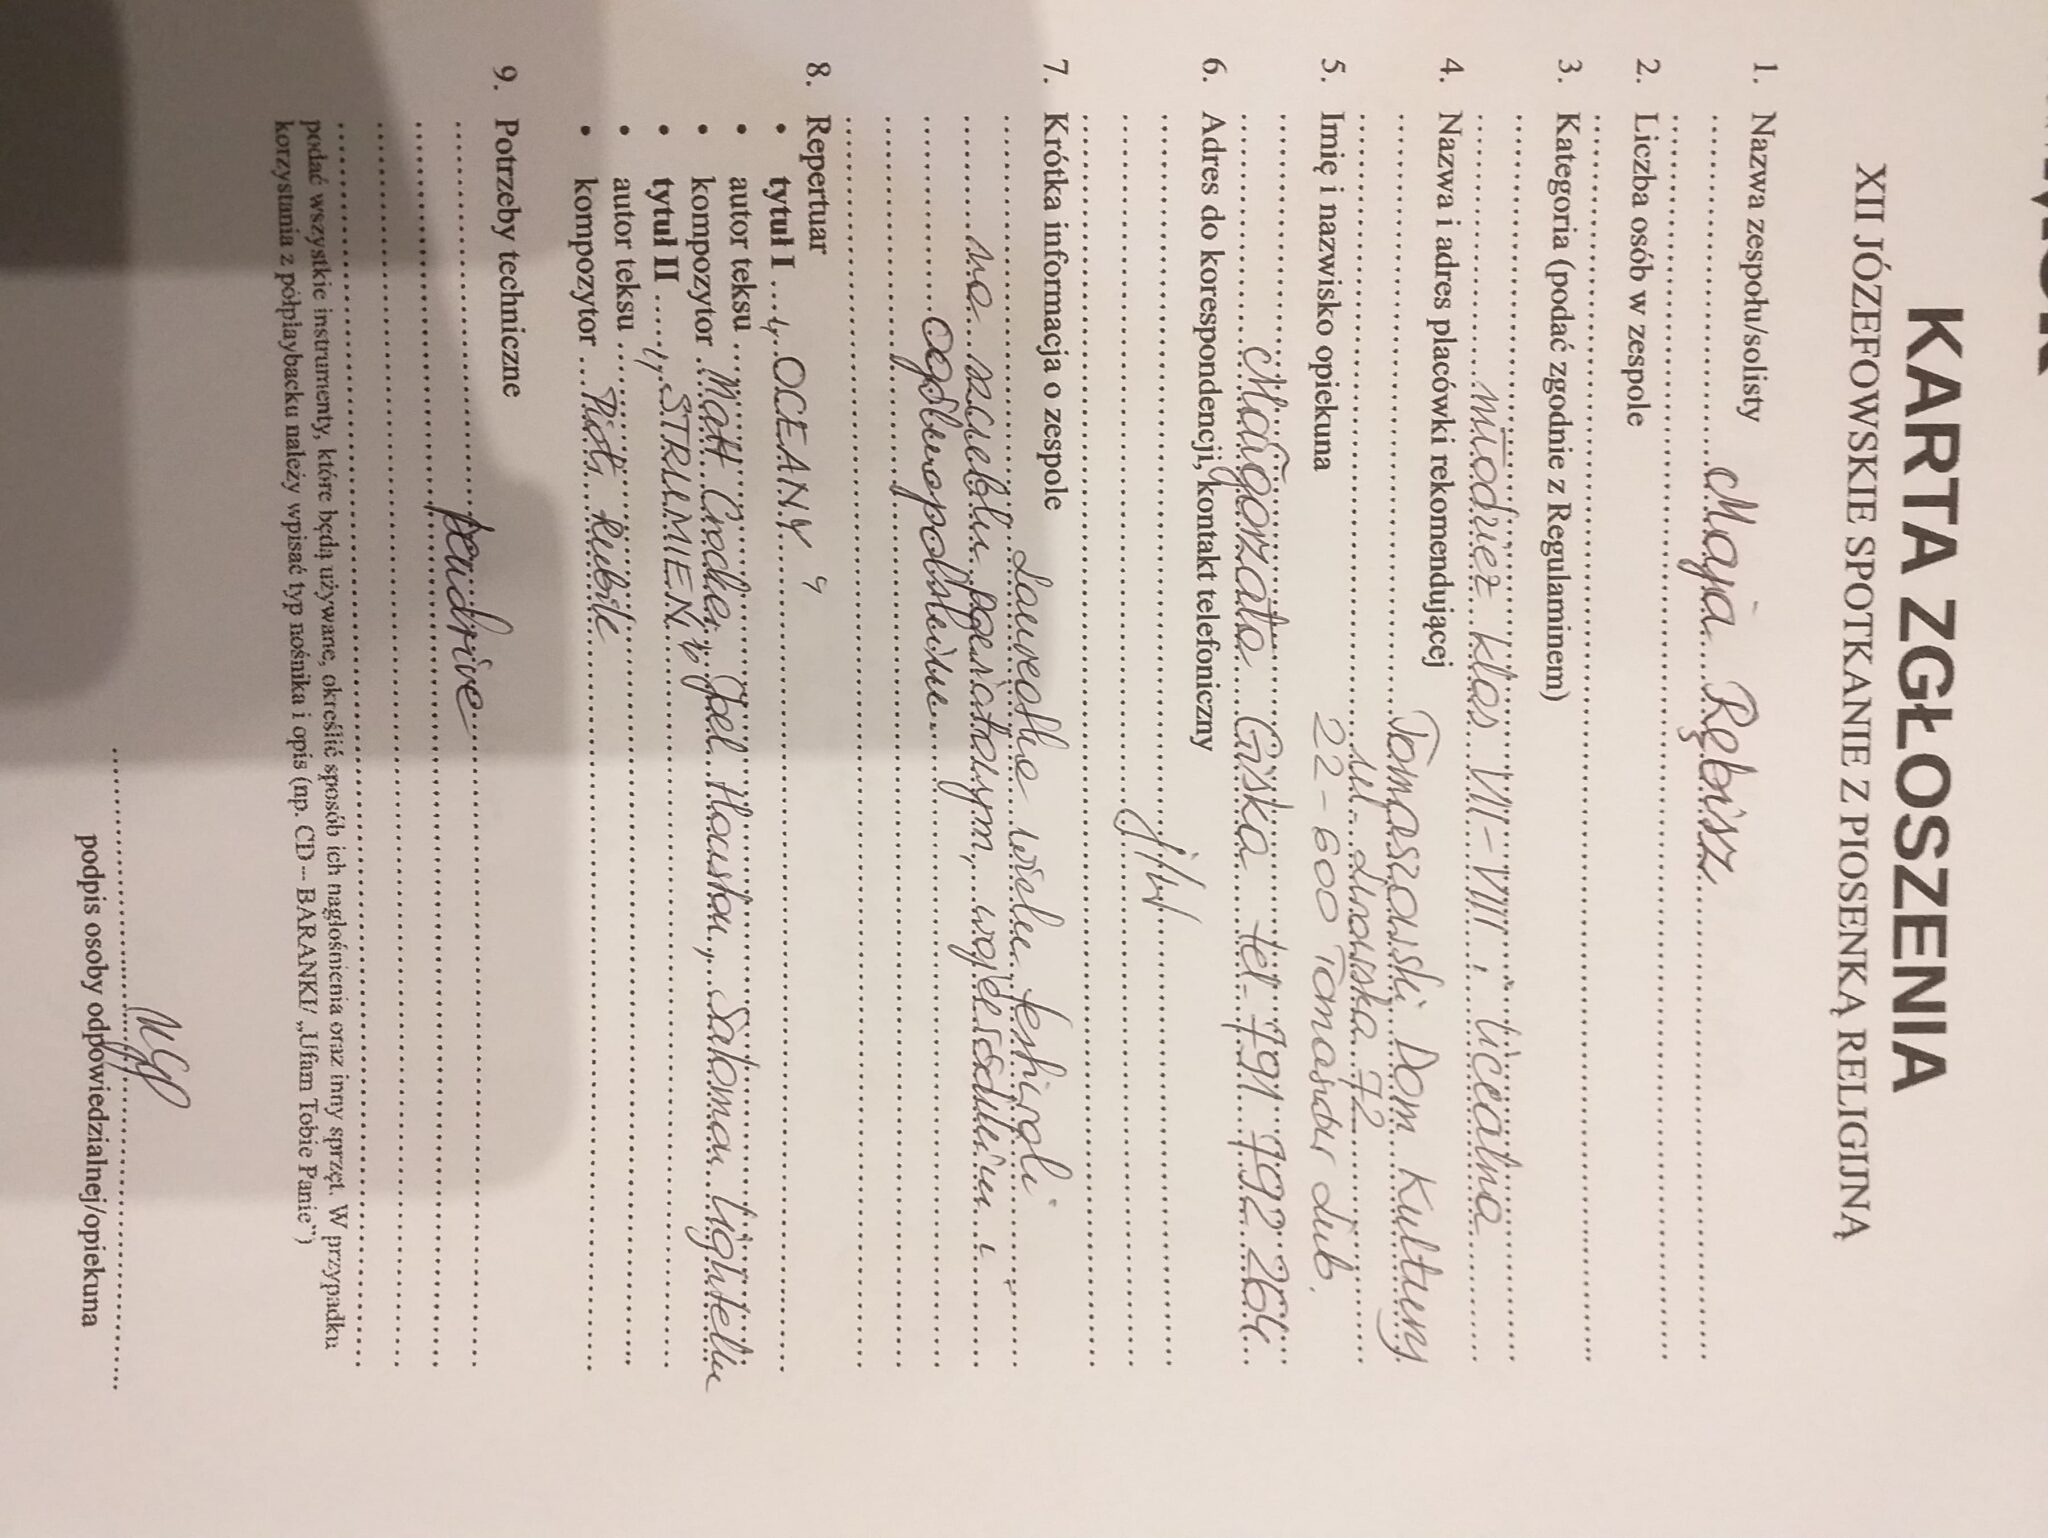 KARTA ZGŁOSZENIA
XII JÓZEFOWSKIE SPOTKANIE Z PIOSENKĄ RELIGIJNĄ
1. Nazwa zespołu/solisty
Maja Rębisz
2. Liczba osób w zespole
3. Kategoria (podać zgodnie z Regulaminem)
młodzież klas VII-VIII i licealna
4. Nazwa i adres placówki rekomendującej
Tomaszowski Dom Kultury
ul. Lwowska 72
5. Imię i nazwisko opiekuna
22-600 Tomaszów Lub.
Małgorzata Giska tel. 791 792 264
6. Adres do korespondencji, kontakt telefoniczny
j/w
7. Krótka informacja o zespole
Laureatka wielu festiwali
na szczeblu powiatowym, wojewódzkim i
ogólnopolskim
8. Repertuar
• tytuł I „OCEANY"
• autor teksu
• kompozytor Matt Crocker, Joel Houston, Salomon Lighthelm
• tytuł II „STRUMIEŃ"
• autor teksu
• kompozytor Piotr Rubik
9. Potrzeby techniczne
pendrive
podać wszystkie instrumenty, które będą używane, określić sposób ich nagłośnienia oraz inny sprzęt. W przypadku
korzystania z półplaybacku należy wpisać typ nośnika i opis (np. CD – BARANKI/ „Ufam Tobie Panie")
podpis osoby odpowiedzialnej/opiekuna